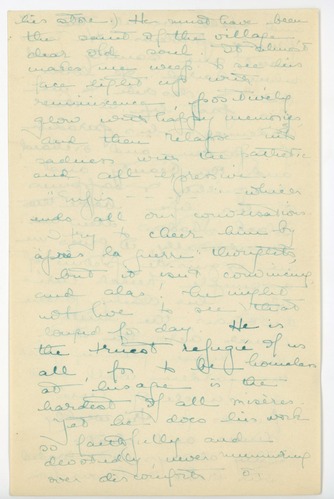 his store.) He must have been
the saint of the village
dear old soul. It almost
makes me weep to see his
face light up with
reminiscence, positively
glow with happy memories
and then relapse into
sadness with the pathetic
and all expressive
which
ends all our conversations.
I try to cheer him by
après la guerre thoughts
but it isn't convincing
and alas! he might
not live to see that
longed for day. He is
the truest refugié of us
all for to be homeless
at his age is the
hardest of all miseries.
Yet he does his work
so faithfully and
devotedly never minding
over discomforts